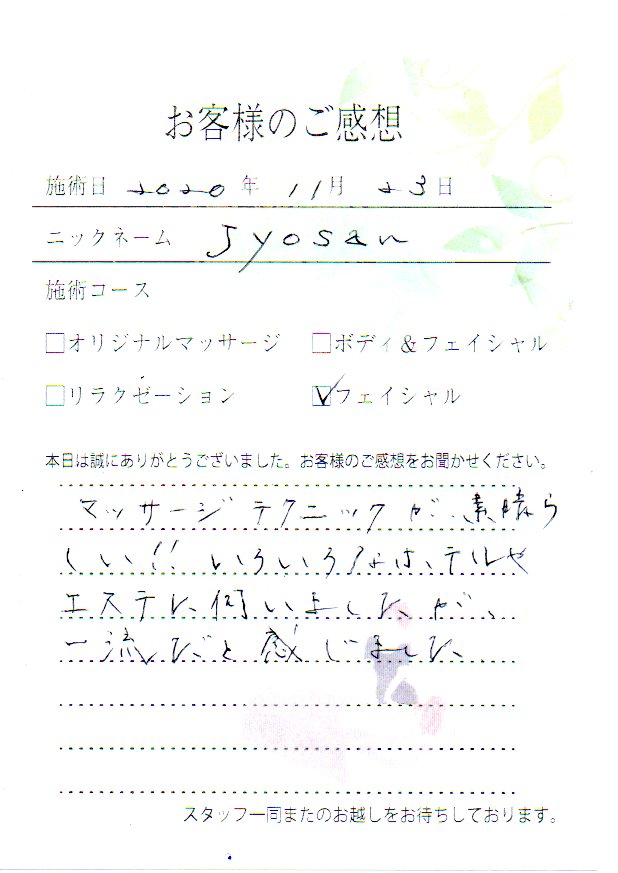 お客様のご感想
施術日 2020 年 11月 23日
ニックネーム Jyosan
施術コース
□オリジナルマッサージ □ボディ&フェイシャル
□リラクゼーション ☑フェイシャル
本日は誠にありがとうございました。お客様のご感想をお聞かせください。
マッサージテクニックが、素晴ら
しい!! いろいろな ホテルや
エステに伺いましたが、
一流だと感じました。
スタッフ一同またのお越しをお待ちしております。